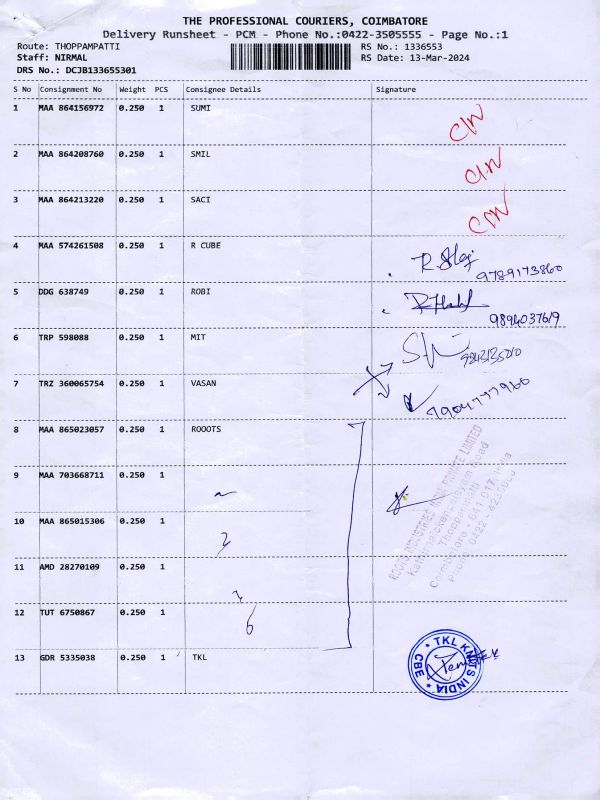 THE PROFESSIONAL COURIERS, COIMBATORE
Delivery Runsheet - PCM - Phone No.:0422-3505555 - Page No.:1
Route: THOPPAMPATTI RS No.: 1336553
Staff: NIRMAL RS Date: 13-Mar-2024
DRS No.: DCJB133655301
S No Consignment No Weight PCS Consignee Details Signature
1 MAA 864156972 0.250 1 SUMI
2 MAA 864208760 0.250 1 SMIL
3 MAA 864213220 0.250 1 SACI
4 MAA 574261508 0.250 1 R CUBE
9789173860
5 DDG 638749 0.250 1 ROBI
9894037619
6 TRP 598088 0.250 1 MIT
7 TRZ 360065754 0.250 1 VASAN
7904777960
8 MAA 865023057 0.250 1 ROOOTS
9 MAA 703668711 0.250 1
10 MAA 865015306 0.250 1
11 AMD 28270109 0.250 1
12 TUT 6750867 0.250 1
6
13 GDR 5335038 0.250 1 TKL
ROOTS INDUSTRIES INDIA PRIVATE LIMITED
Thoppampatti
Coimbatore - 641 017, India
TKL KNITS INDIA
CBE